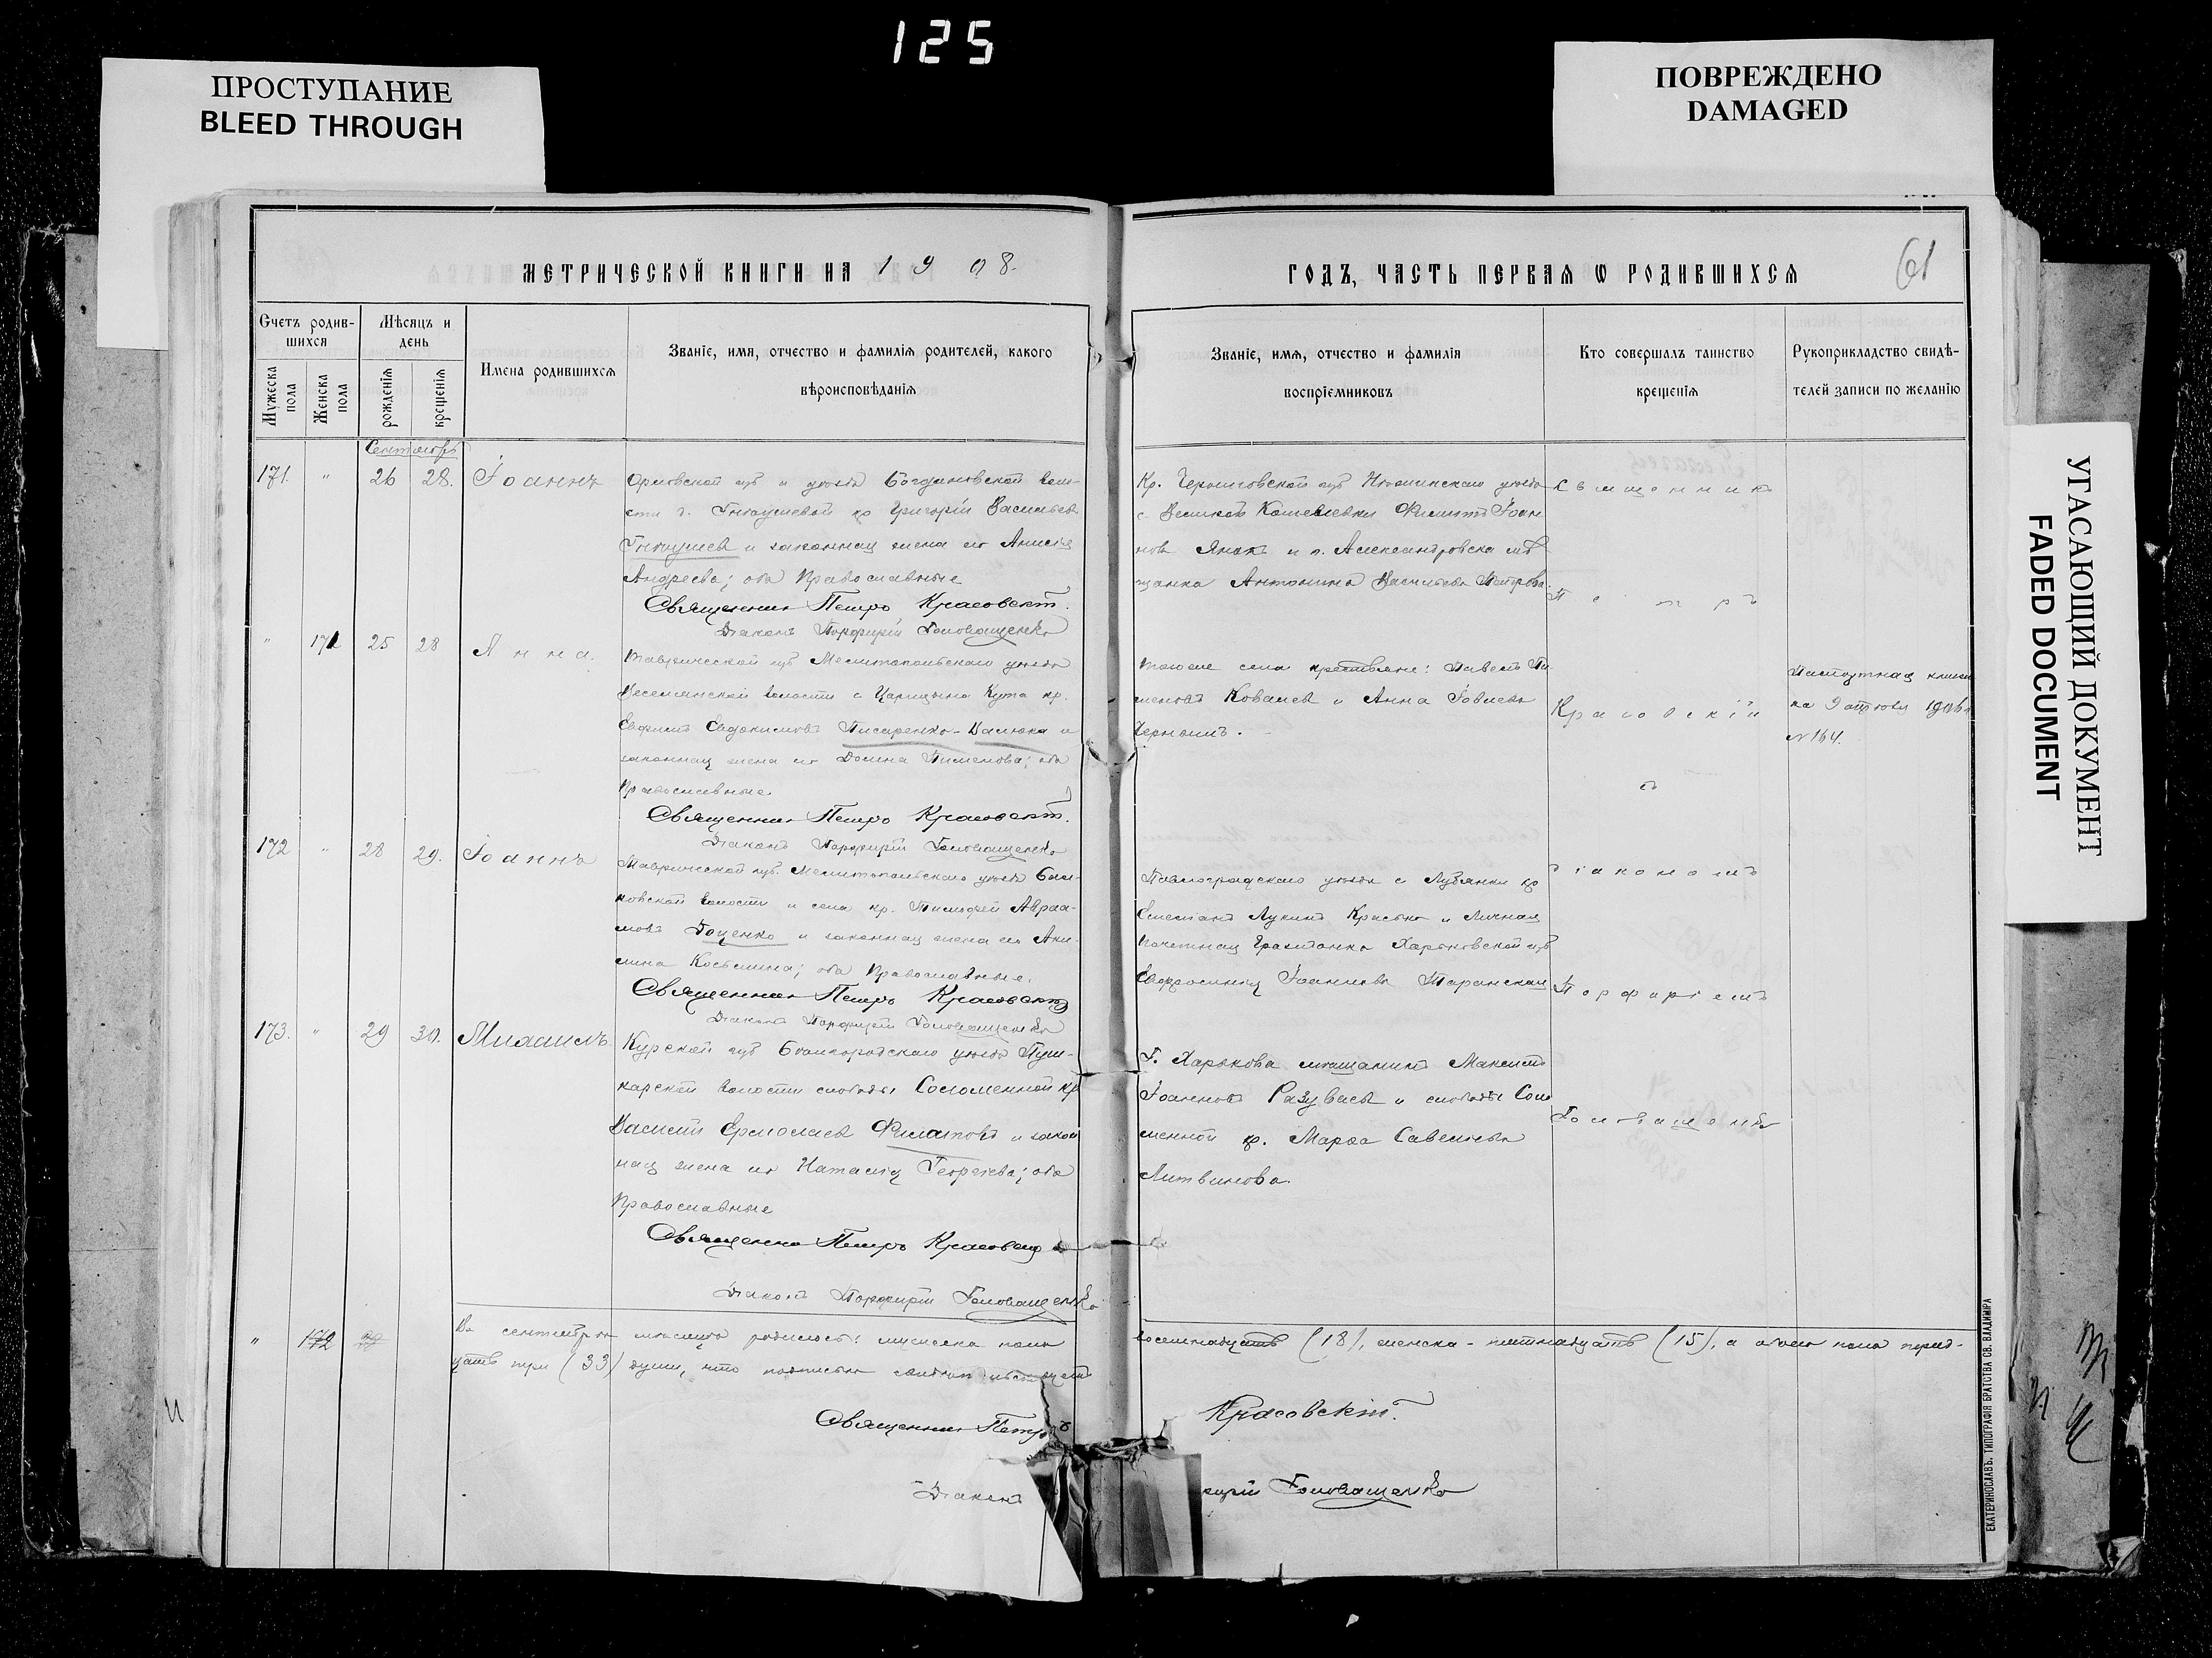 125
ПРОСТУПАНИЕ
BLEED THROUGH
ПОВРЕЖДЕНО
DAMAGED
УГАСАЮЩИЙ ДОКУМЕНТ
FADED DOCUMENT
МЕТРИЧЕСКОЙ КНИГИ НА 1908.
Счетъ родив-
шихся
Мѣсяцъ и
день
Мужеска
пола
Женска
пола
рожденія
крещенія
Имена родившихся
Званіе, имя, отчество и фамилія родителей, какого
вѣроисповѣданія
Сентябрь
171. " 26 28. Іоаннъ
Орловской губ и уѣзда Богдановской воло-
сти д. кр Григорій Васильевъ
и законная жена его Анисія
Андреева; оба Православные
Священникъ Петръ Красовскій.
Діаконъ Порфирій Головащенко
" 171 25 28 Анна.
Таврической губ Мелитопольскаго уѣзда
Веселянской волости с Царицына Кута кр.
Евфимъ Евдокимовъ Писаренко-Васюка и
законная жена его Домна Пименова; оба
Православные
Священникъ Петръ Красовскій.
Діаконъ Порфирій Головащенко
172 " 28 29. Іоаннъ
Таврической губ. Мелитопольскаго уѣзда
волости и села кр. Тимофей Авраа-
мовъ Доценко и законная жена его Аки-
лина Косьмина; оба Православные.
Священникъ Петръ Красовскій
Діаконъ Порфирій Головащенко
173. " 29 30. Михаилъ
Курской губ Бѣлгородскаго уѣзда Пуш-
карской волости слободы Соломенной кр
Василій Ермолаевъ Филатовъ и закон
ная жена его Наталія Георгіева; оба
Православные
Священникъ Петръ Красовскій
Діаконъ Порфирій Головащенко
" 172
Въ сентябрѣ мѣсяцѣ родилось: мужеска пола
цать три (33) души, что подписью
Священникъ Петръ
Діаконъ
ГОДЪ, ЧАСТЬ ПЕРВАЯ Ѡ РОДИВШИХСЯ
61
Званіе, имя, отчество и фамилія
воспріемниковъ
Кто совершалъ таинство
крещенія
Рукоприкладство свидѣ-
телей записи по желанію
Кр. Черниговской губ Нѣжинскаго уѣзда
с. Великой Кошелевки Филиппъ Іоан
новъ и г. Александровска мѣ
щанка Антонина Васильева Петрова.
Священникъ
Петръ
Красовскій
съ
діакономъ
Порфиріемъ
Головащенко
Того же села крестьяне: Павелъ Пи
меновъ Ковалевъ и Анна Іовлева
Паспортная книж
ка 1906 г
№ 164.
Павлоградскаго уѣзда с Лубянки кр
Емеліанъ Лукинъ и Личная
почетная гражданка Харьковской губ
Евфросинія Іоаннова Таранская
Г. Харькова мѣщанинъ Максимъ
Іоанновъ Разуваевъ и слободы Соло
менной кр. Марѳа Савельева
Литвинова.
восемнадцать (18), женска - пятнадцать (15), а обоего пола трид-
Красовскій.
фирій Головащенко
ЕКАТЕРИНОСЛАВЪ. ТИПОГРАФІЯ БРАТСТВА СВ. ВЛАДИМІРА